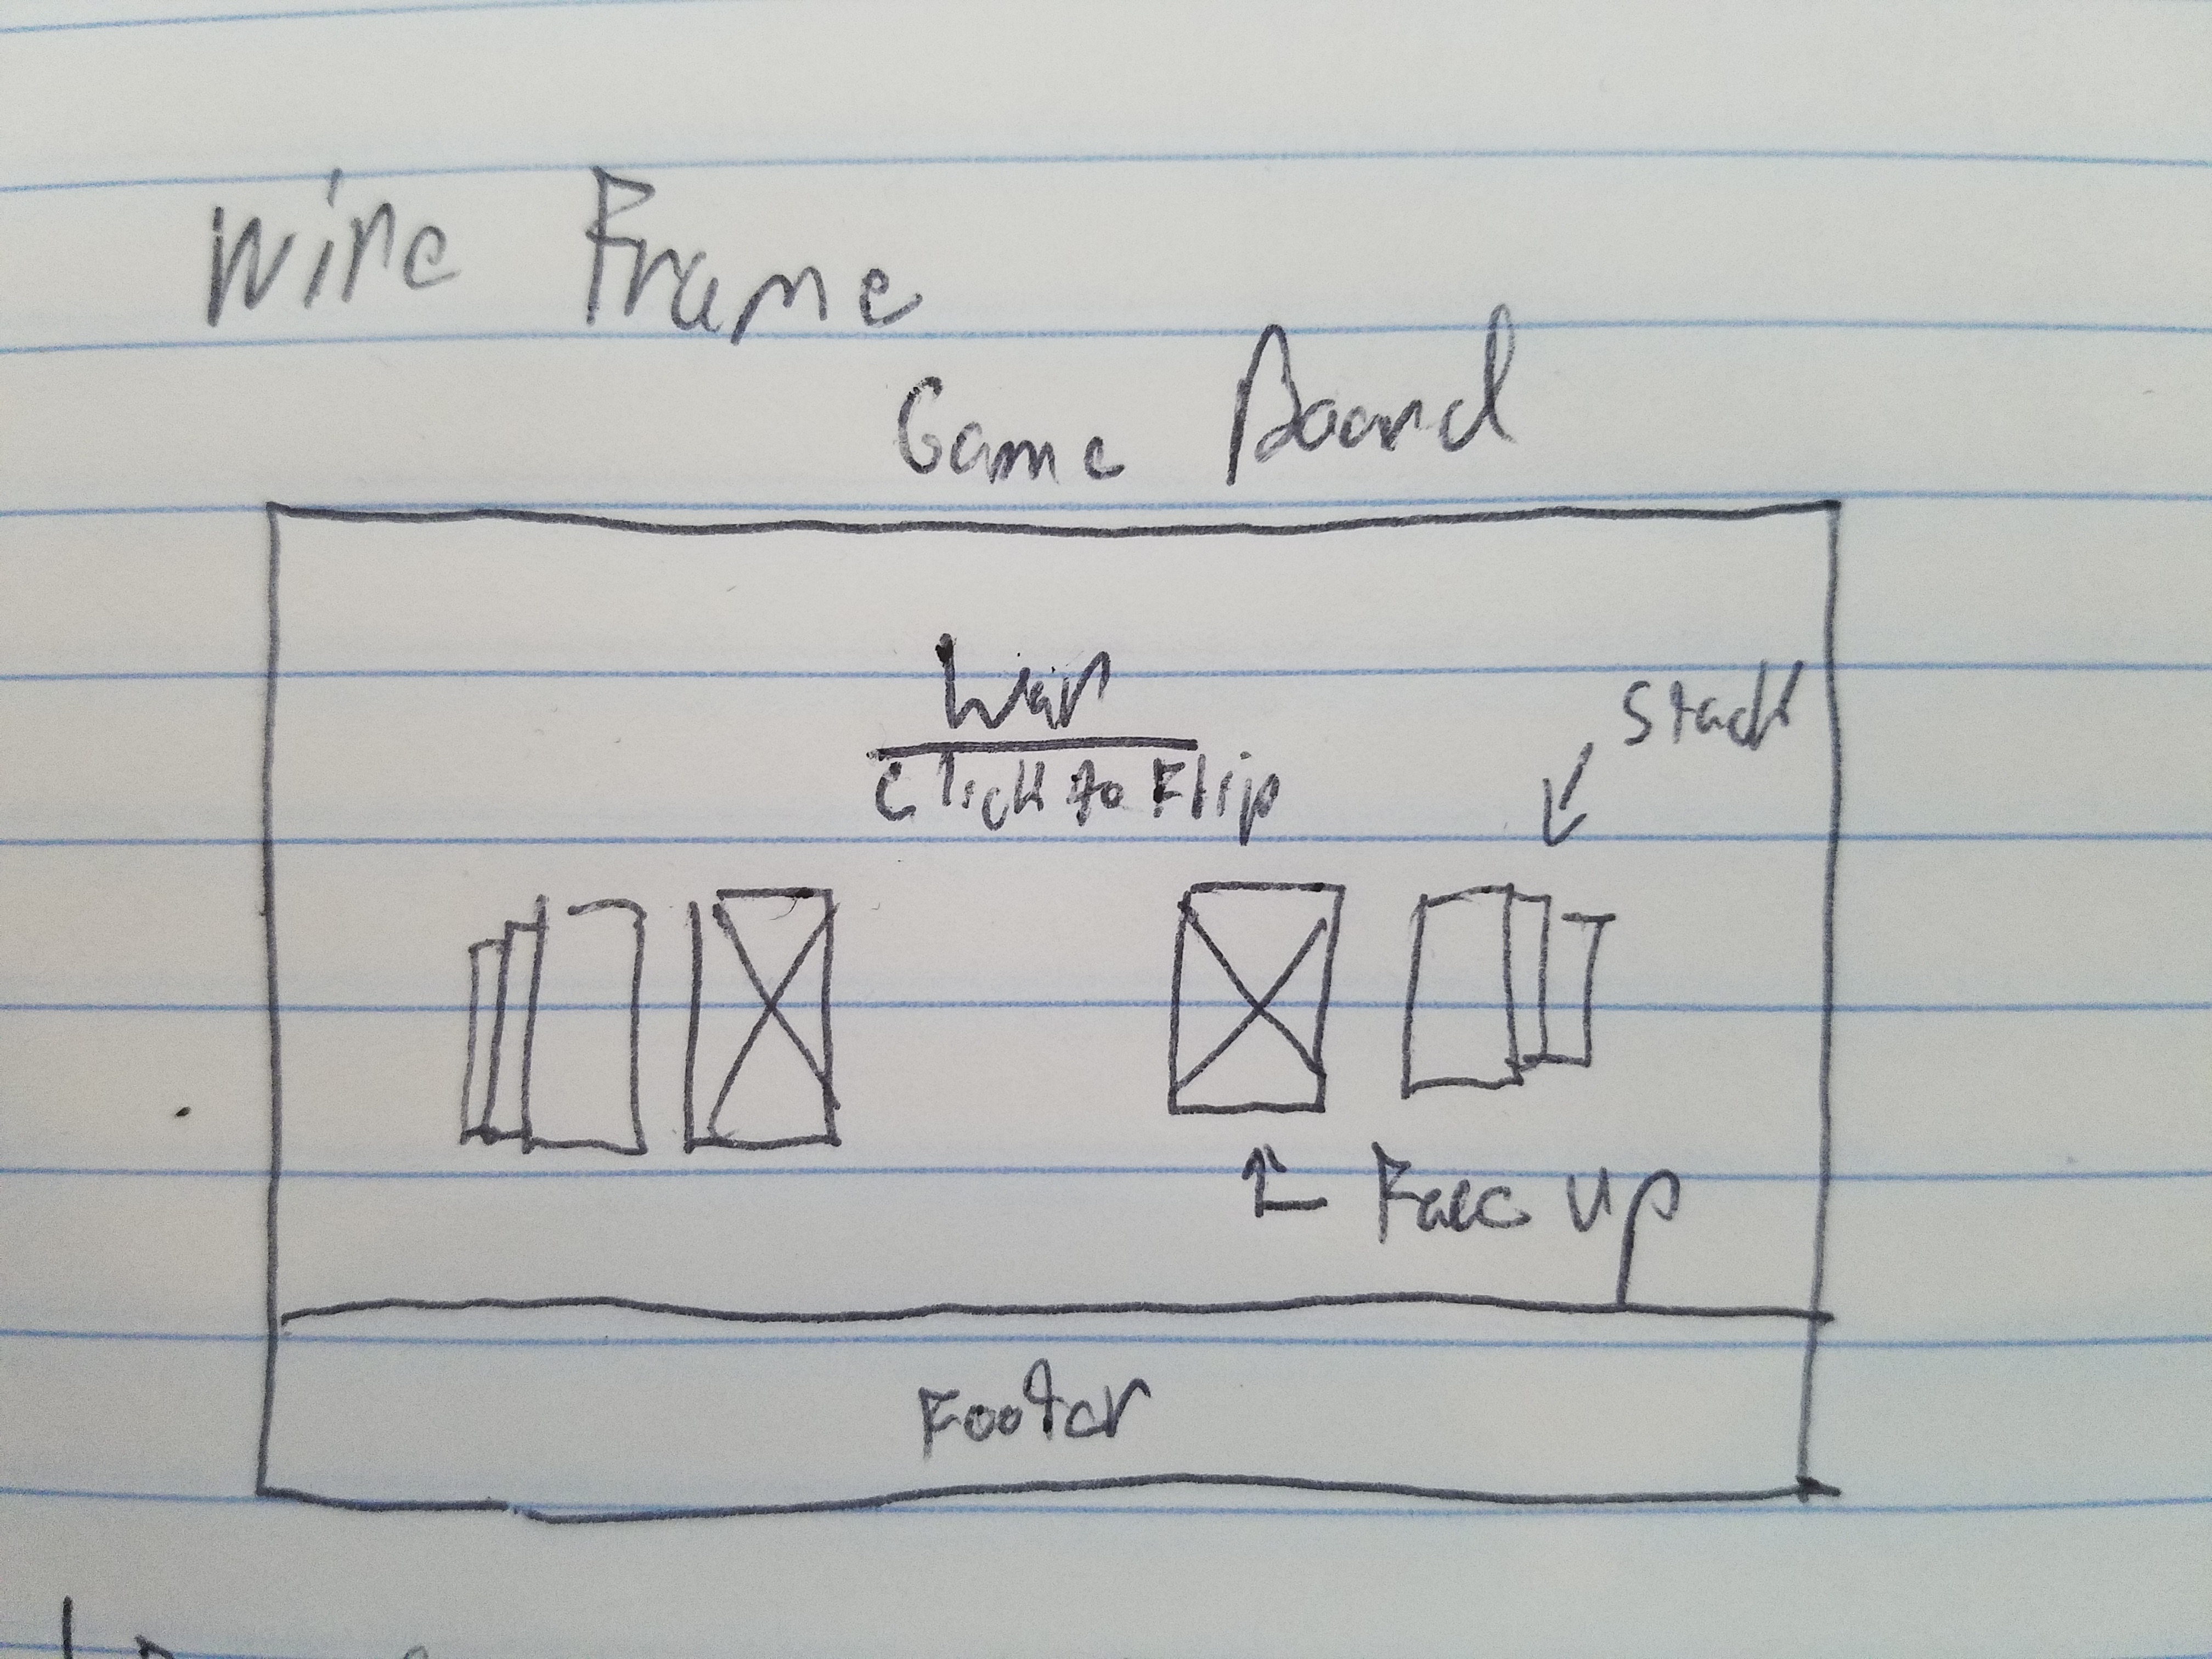 Wire Frame
Game Board
War
Click to Flip
Stack
Face up
Footer